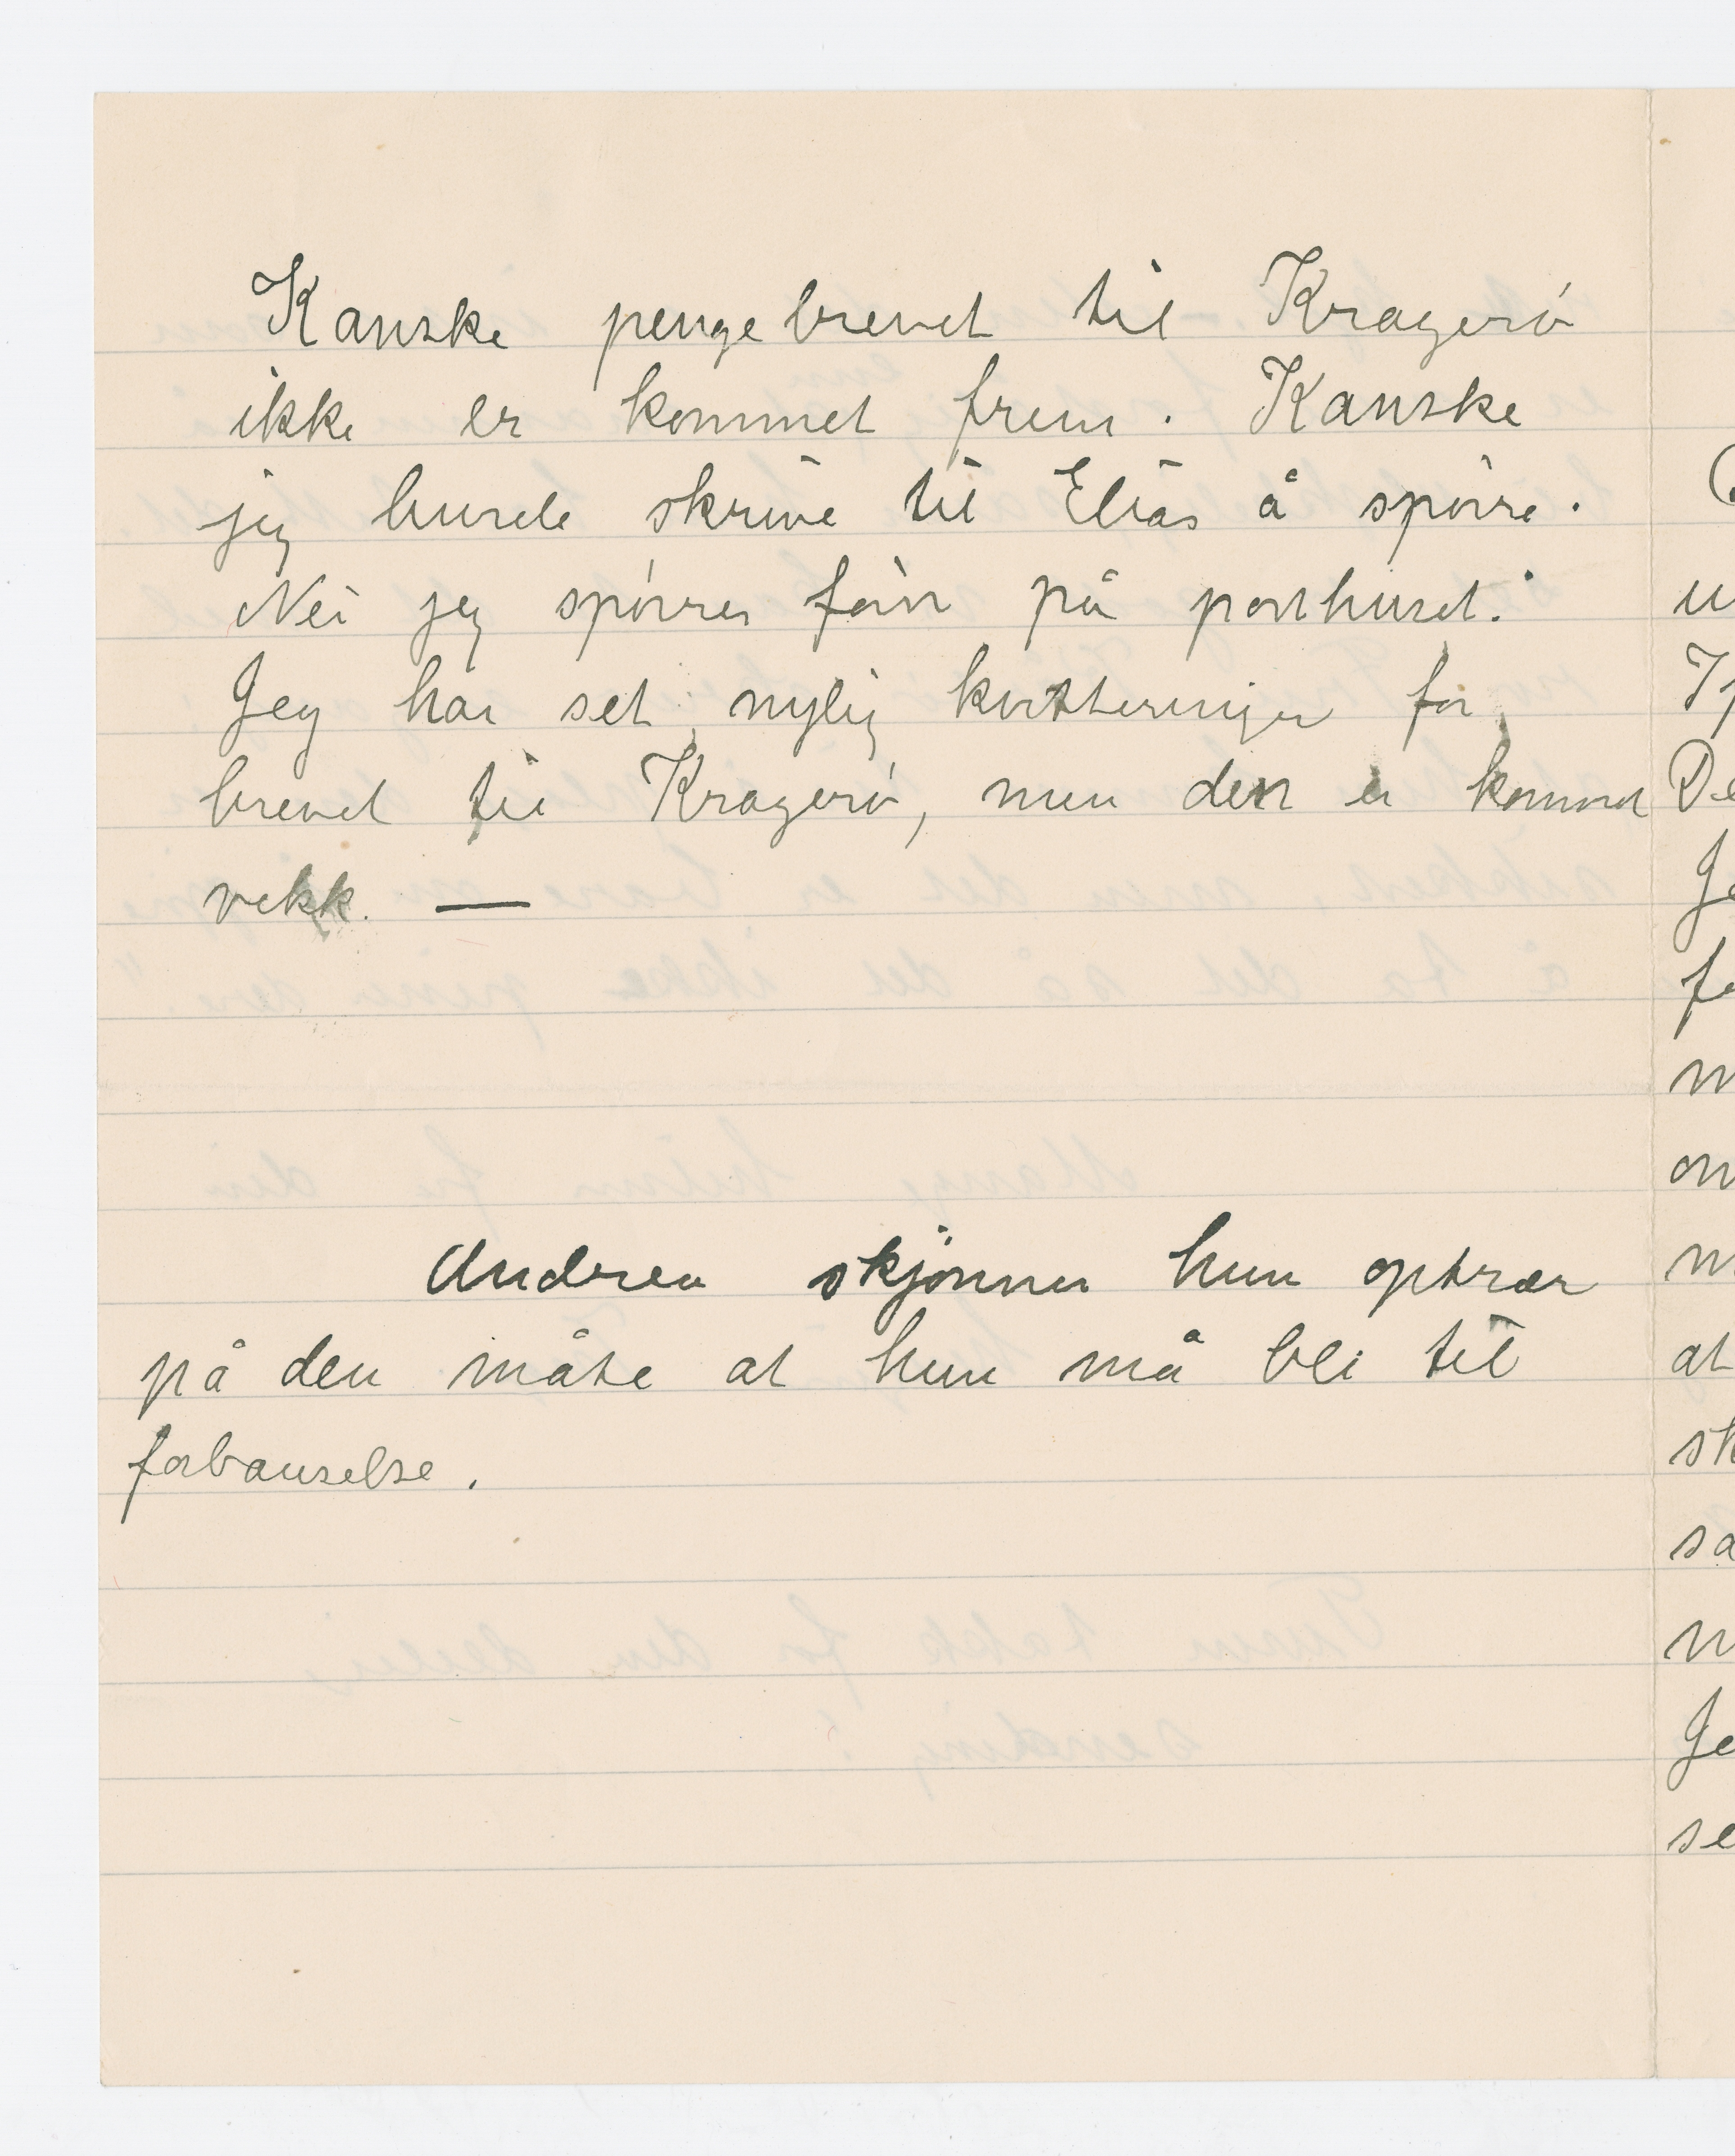 Kanske pengebrevet til Kragerø
ikke er kommet frem. Kanske
jeg burde skrive til Elias å spørre.
Nei jeg spørrer først på posthuset.
Jeg har set nylig kvitteringen for
brevet til Kragerø, men den er kommet
vekk. —
Andrea skjønner hun optrær
på den måte at hun må bli til
forbauselse.